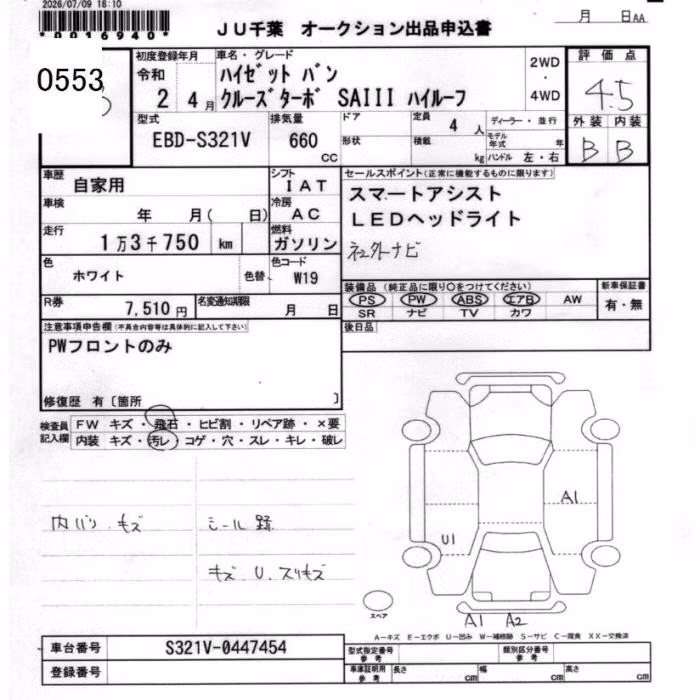 2026/07/09 18:10
*0016940*
JU千葉 オークション出品申込書
月 日AA
0553
初度登録年月
令和
2 4月
車名・グレード
ハイゼット バン
クルーズターボ SAIII ハイルーフ
2WD
・
4WD
評価点
4.5
外装 内装
B B
型式
EBD-S321V
排気量
660
cc
ドア
形状
定員
4人
積載
kg
ディーラー・並行
モデル年式 年
ハンドル 左・右
車歴
自家用
シフト
IAT
車検
年 月( 日)
冷房
AC
走行
1万3千750 km
燃料
ガソリン
色
ホワイト
色替
色コード
W19
R券
7,510円
名変通知期限
月 日
セールスポイント(正常に機能するものに限ります)
スマートアシスト
LEDヘッドライト
社外ナビ
装備品 (純正品に限り○をつけてください)
PS PW ABS エアB AW
SR ナビ TV カワ
新車保証書
有・無
後日品
注意事項申告欄(不具合内容等は具体的に記入して下さい)
PWフロントのみ
修復歴 有〔箇所 〕
検査員
記入欄
FW キズ・飛石・ヒビ割・リペア跡・×要
内装 キズ・汚レ・コゲ・穴・スレ・キレ・破レ
内バリ キズ
シール跡
キズ U. スリキズ
A1
U1
A1 A2
スペア
A−キズ E−エクボ U−凹み W−補修跡 S−サビ C−腐食 XX−交換済
車台番号
S321V-0447454
登録番号
型式指定番号
参考
類別区分番号
参考
車庫証明用
参考
長さ cm
幅 cm
高さ cm